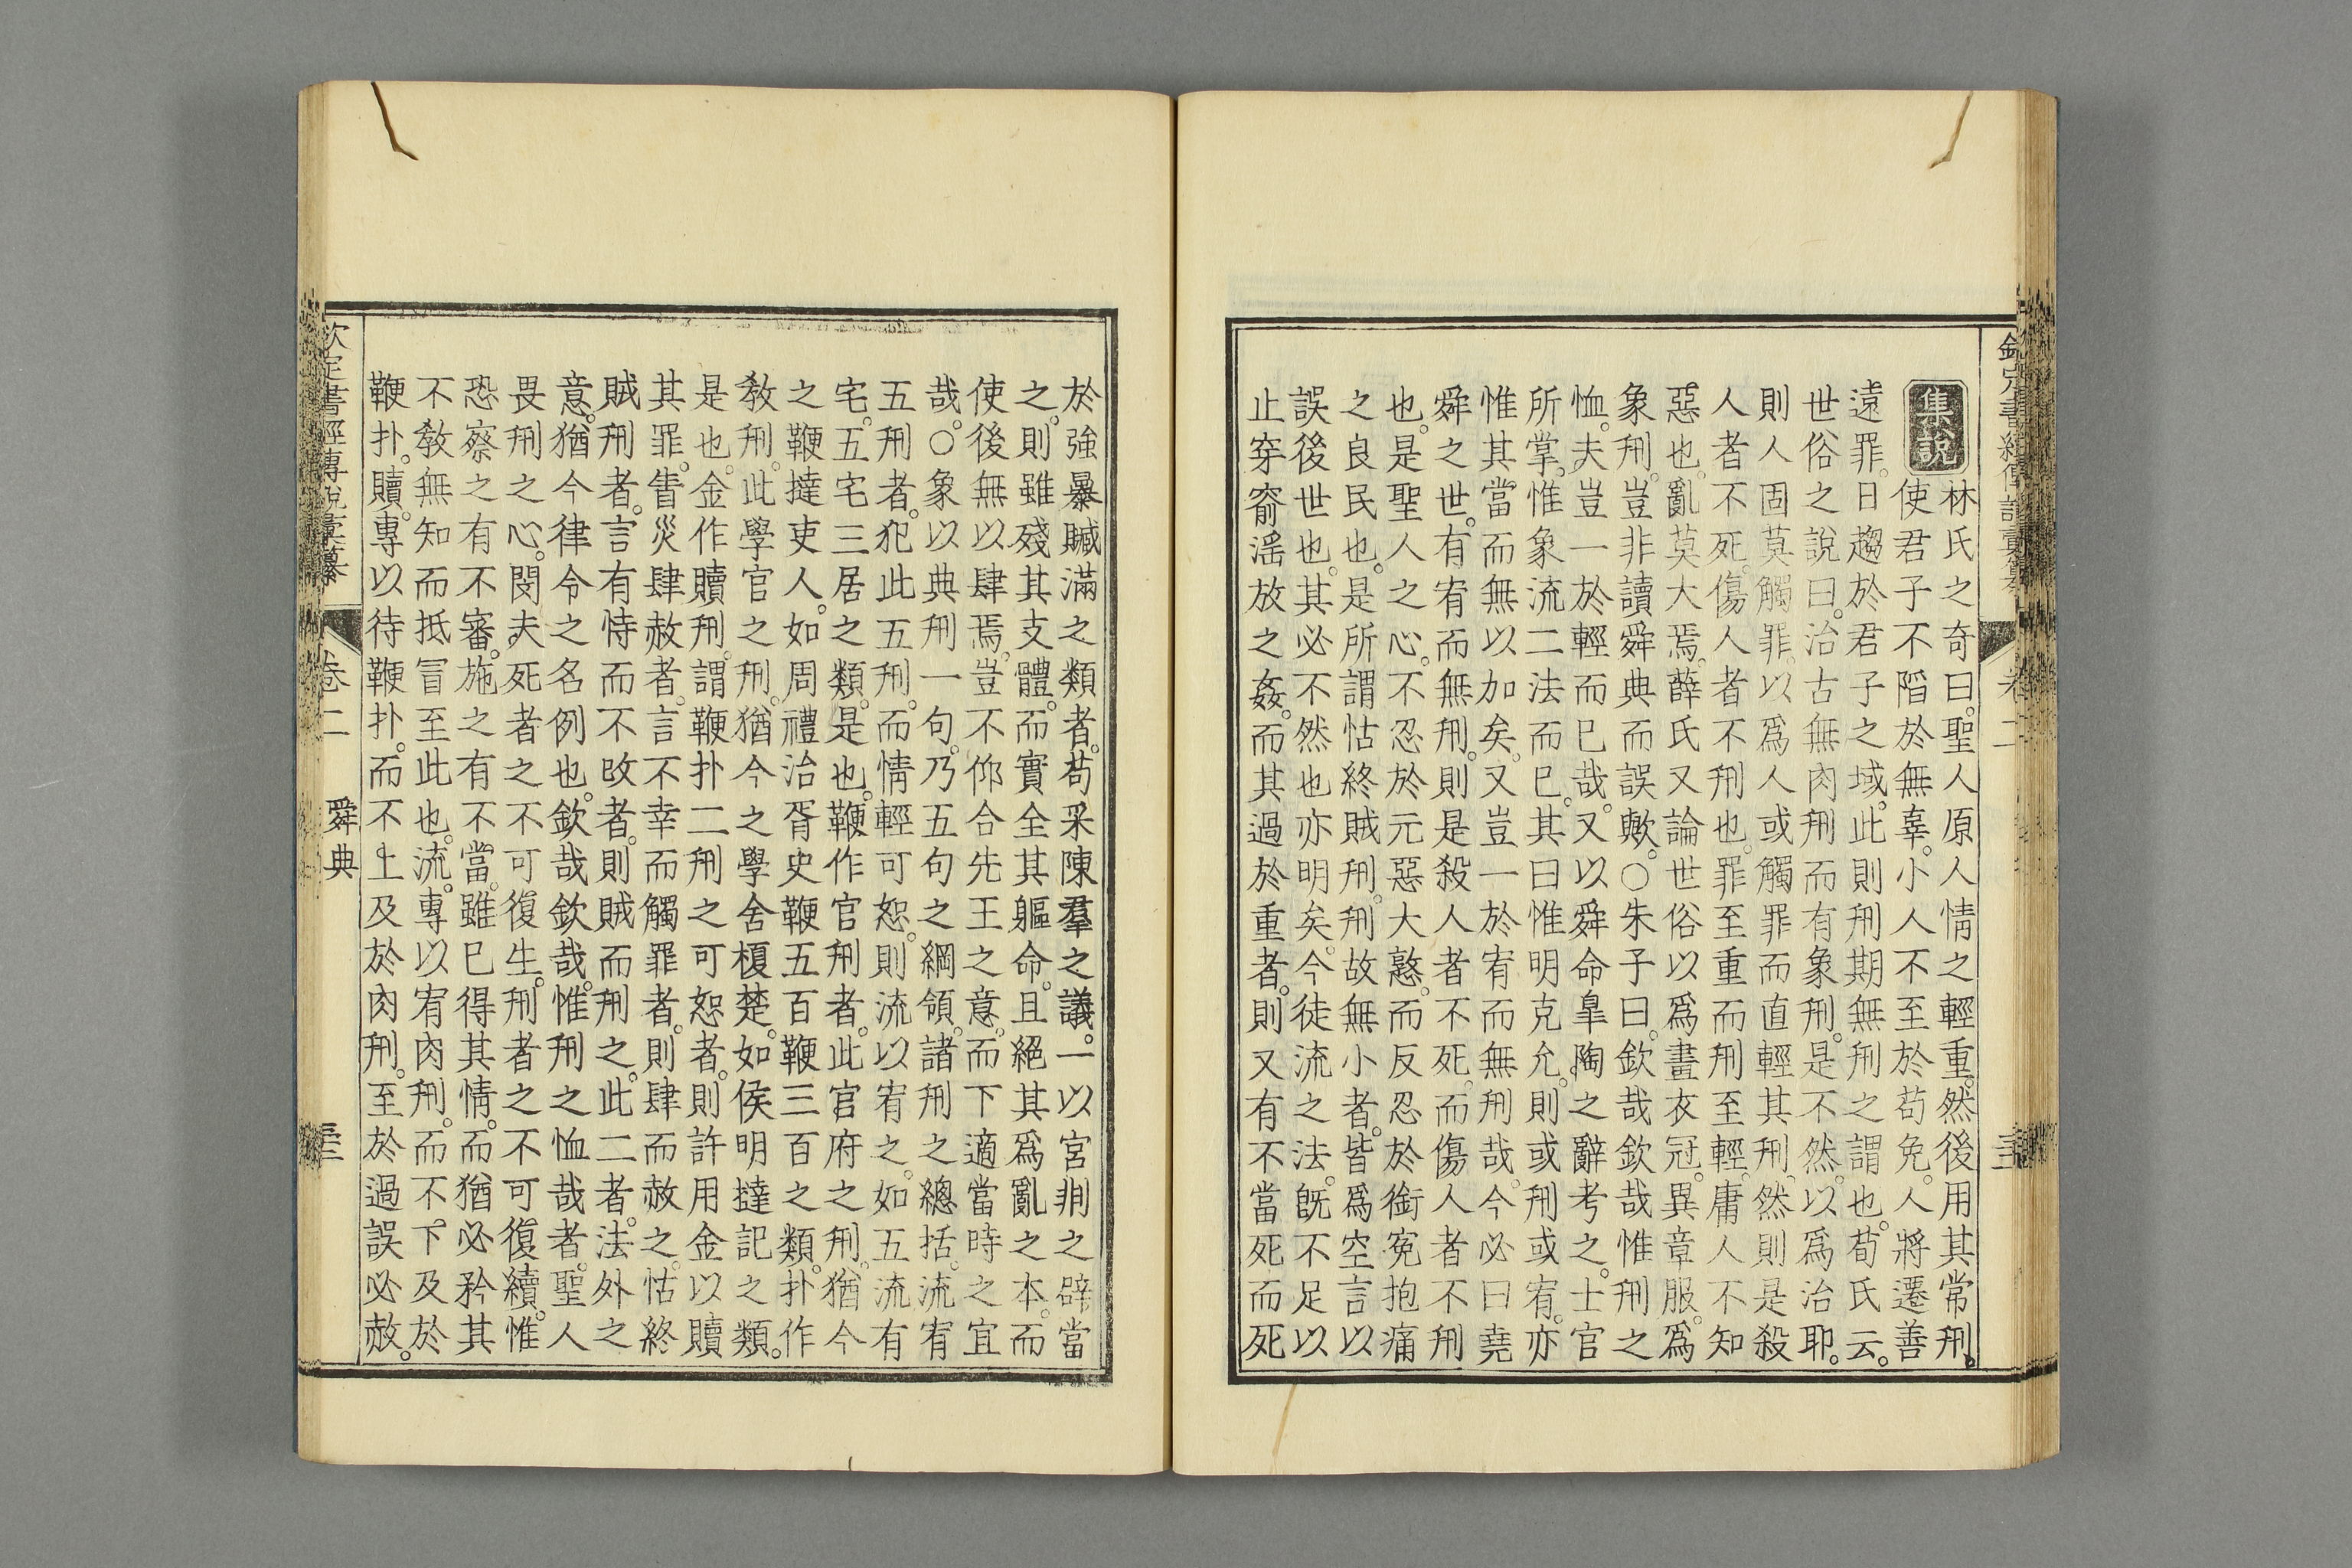 欽定書經傳說彙纂
卷二
集說
林氏之奇曰。聖人原人情之輕重。然後用其常刑。
使君子不陷於無辜。小人不至於苟免。人將遷善
遠罪。日趨於君子之域。此則刑期無刑之謂也。荀氏云。
世俗之說曰。治古無肉刑而有象刑。是不然。以爲治耶。
則人固莫觸罪。以爲人或觸罪而直輕其刑。然則是殺
人者不死。傷人者不刑也。罪至重而刑至輕。庸人不知
惡也。亂莫大焉。薛氏又論世俗以爲畫衣冠。異章服。爲
象刑。豈非讀舜典而誤歟。○朱子曰。欽哉欽哉惟刑之
恤。夫豈一於輕而已哉。又以舜命臯陶之辭考之。士官
所掌。惟象流二法而已。其曰惟明克允。則或刑或宥。亦
惟其當而無以加矣。又豈一於宥而無刑哉。今必曰堯
舜之世。有宥而無刑。則是殺人者不死。而傷人者不刑
也。是聖人之心。不忍於元惡大憝。而反忍於銜寃抱痛
之良民也。是所謂怙終賊刑。刑故無小者。皆爲空言以
誤後世也。其必不然也亦明矣。今徒流之法。旣不足以
止穿窬淫放之姦。而其過於重者。則又有不當死而死
於強暴贓滿之類者。苟采陳羣之議。一以宮剕之辟當
之。則雖殘其支體。而實全其軀命。且絕其爲亂之本。而
使後無以肆焉。豈不仰合先王之意。而下適當時之宜
哉。○象以典刑一句。乃五句之綱領。諸刑之總括。流宥
五刑者。犯此五刑。而情輕可恕。則流以宥之。如五流有
宅。五宅三居之類。是也。鞭作官刑者。此官府之刑。猶今
之鞭撻吏人。如周禮治胥史鞭五百鞭三百之類。扑作
敎刑。此學官之刑。猶今之學舍榎楚。如侯明撻記之類。
是也。金作贖刑。謂鞭扑二刑之可恕者。則許用金以贖
其罪。眚災肆赦者。言不幸而觸罪者。則肆而赦之。怙終
賊刑者。言有恃而不改者。則賊而刑之。此二者。法外之
意。猶今律令之名例也。欽哉欽哉。惟刑之恤哉者。聖人
畏刑之心。閔夫死者之不可復生。刑者之不可復續。惟
恐察之有不審。施之有不當。雖已得其情。而猶必矜其
不敎無知而抵冒至此也。流。專以宥肉刑。而不下及於
鞭扑。贖。專以待鞭扑。而不上及於肉刑。至於過誤必赦。
欽定書經傳說彙纂
卷二
舜典